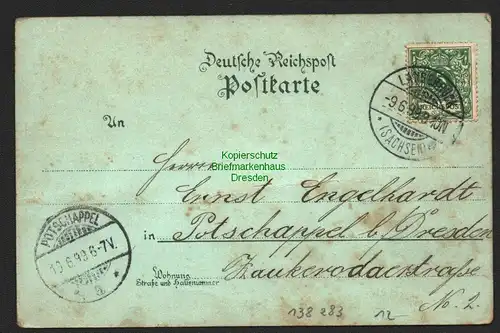 Deutsche Reichspost
Postkarte
9.6.99
(SACHSEN)
An
Herrn
Kopierschutz
Briefmarkenhaus
Dresden
Ernst Engelhardt
in Potschappel b/Dresden
POTSCHAPPEL
10.6.99.6-7V.
a
Wohnung
Straße und Hausnummer
Zaukerodaerstraße
No. 2.
138 283
12